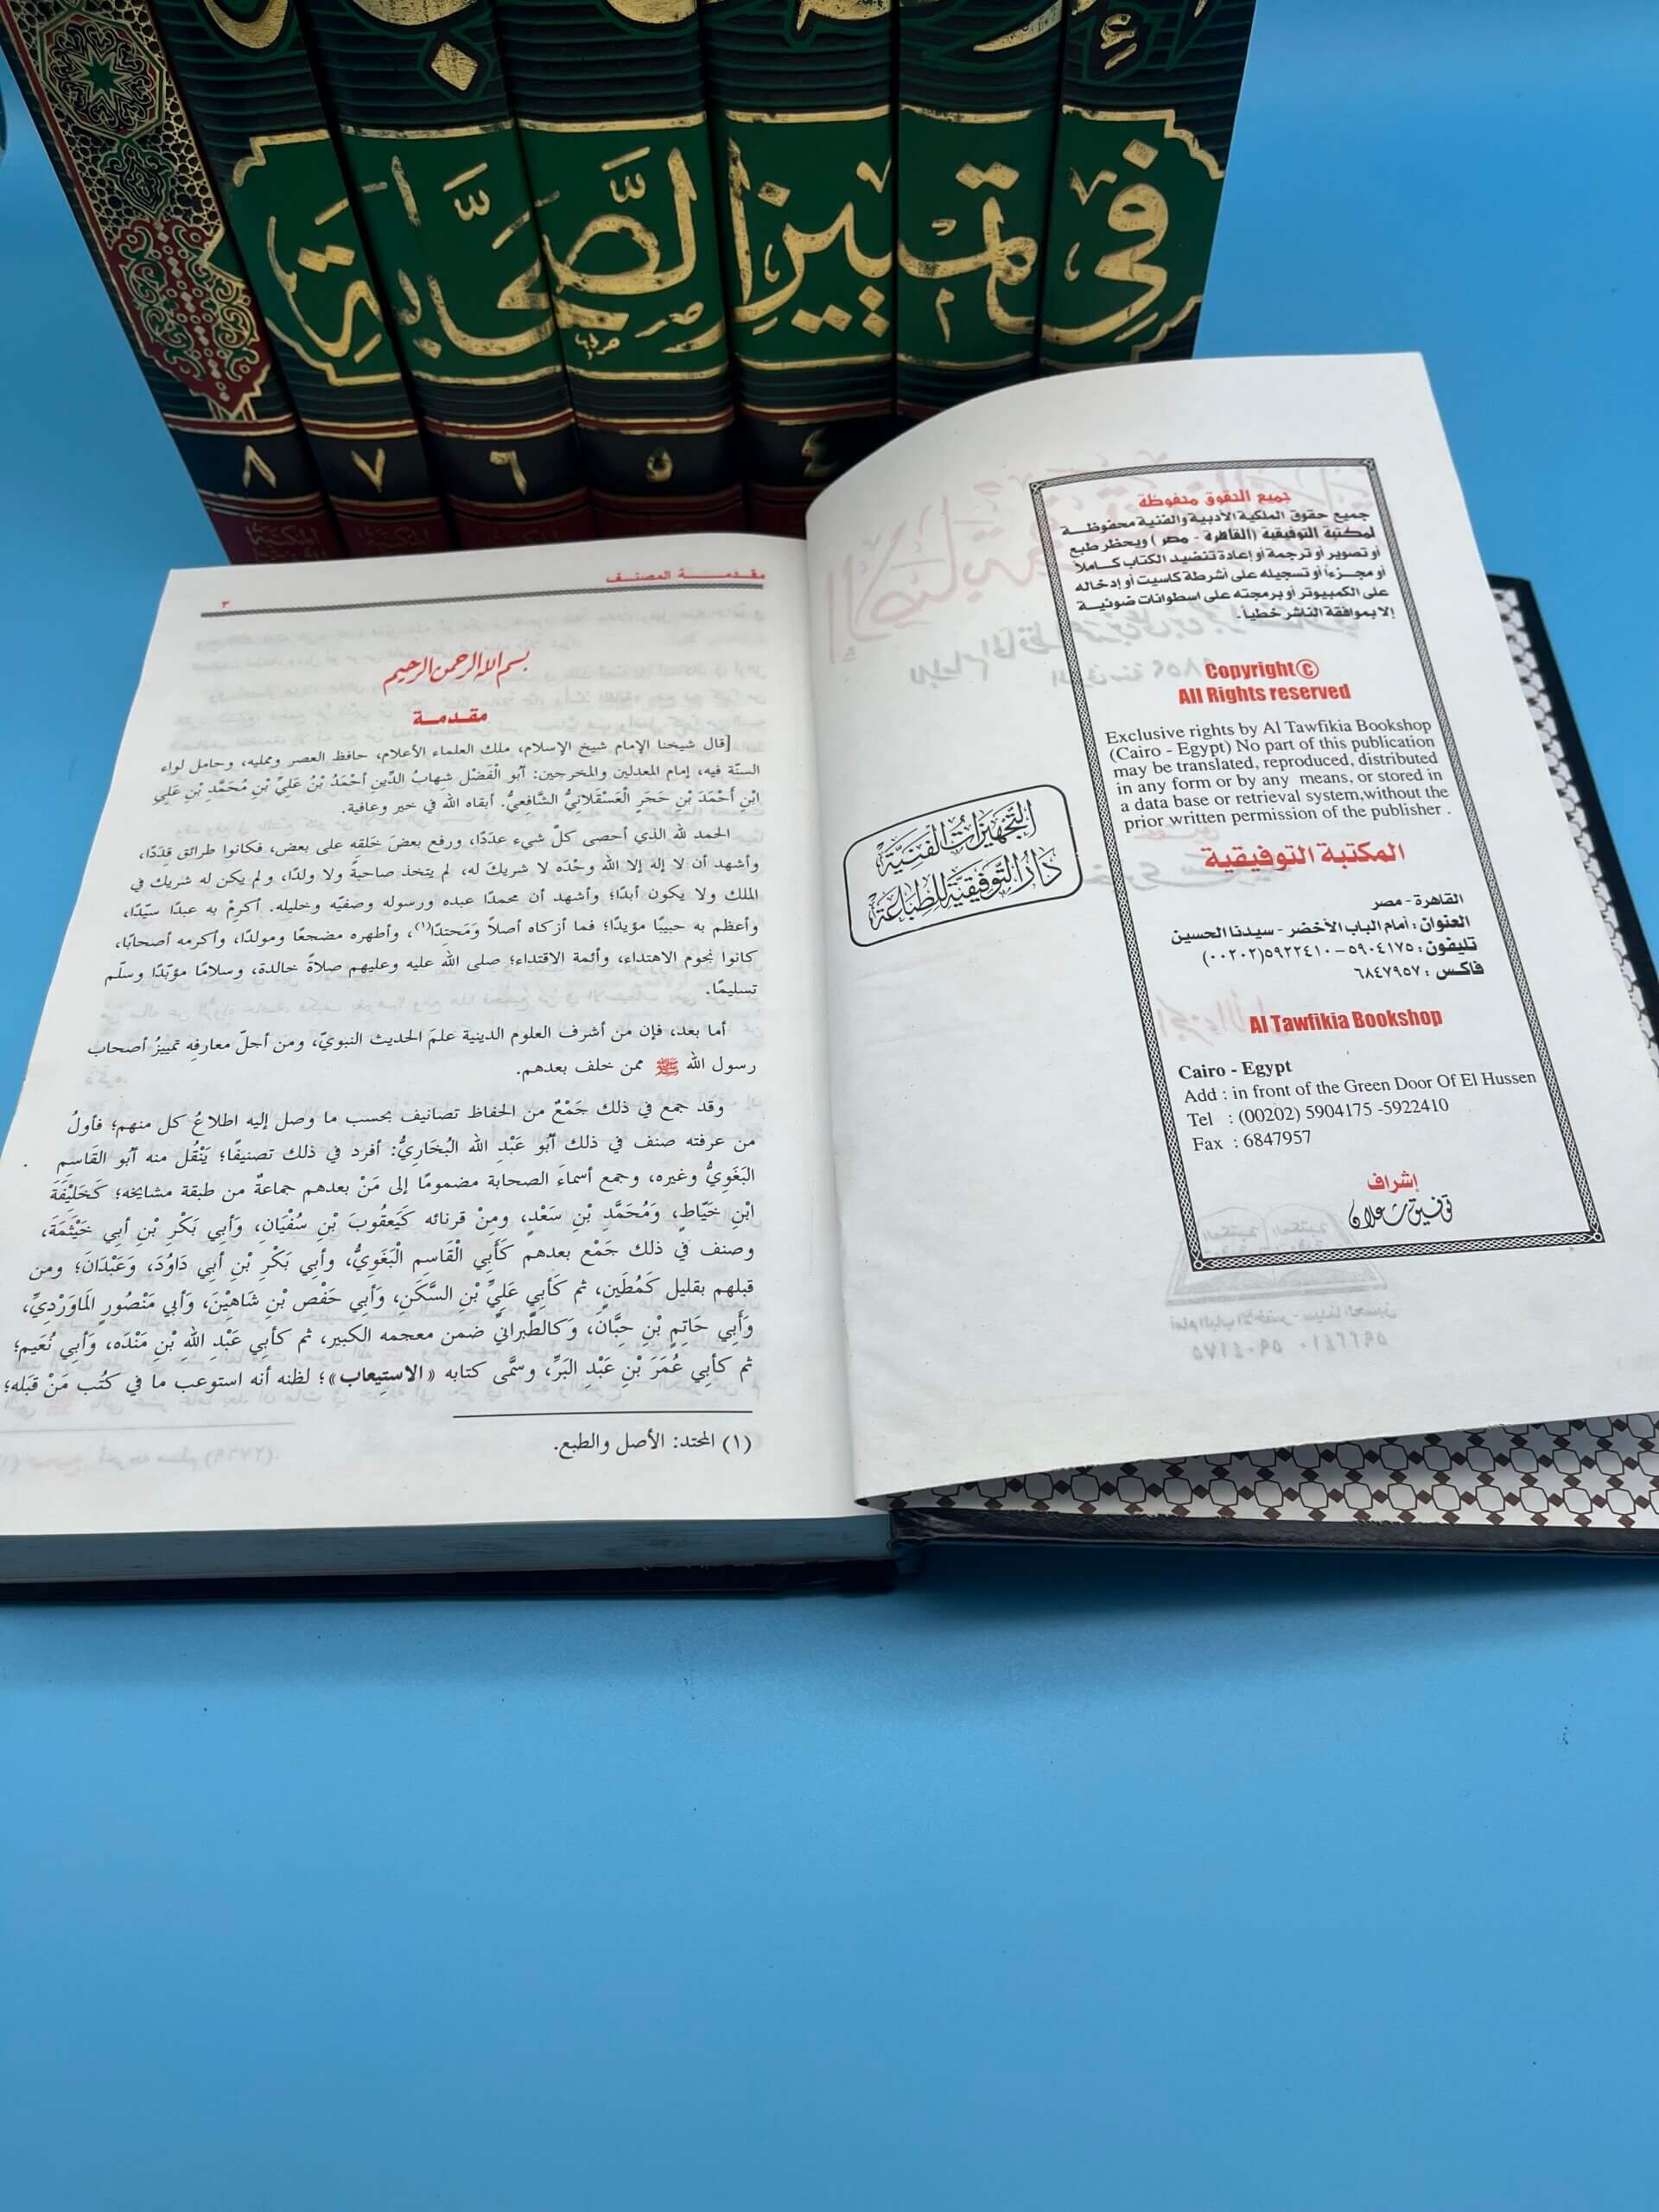 في تمييز الصحابة
٨
٧
٦
٥
٤
جميع الحقوق محفوظة
جميع حقوق الملكية الأدبية والفنية محفوظة
لمكتبة التوفيقية (القاهرة - مصر) ويحظر طبع
أو تصوير أو ترجمة أو إعادة تنضيد الكتاب كاملاً
أو مجزءاً أو تسجيله على أشرطة كاسيت أو إدخاله
على الكمبيوتر أو برمجته على اسطوانات ضوئية
إلا بموافقة الناشر خطياً.
Copyright©
All Rights reserved
Exclusive rights by Al Tawfikia Bookshop
(Cairo - Egypt) No part of this publication
may be translated, reproduced, distributed
in any form or by any means, or stored in
a data base or retrieval system,without the
prior written permission of the publisher .
المكتبة التوفيقية
القاهرة - مصر
العنوان : أمام الباب الأخضر - سيدنا الحسين
تليفون : ٥٩٠٤١٧٥ - ٥٩٢٢٤١٠(٠٠٢٠٢)
فاكس : ٦٨٤٧٩٥٧
Al Tawfikia Bookshop
Cairo - Egypt
Add : in front of the Green Door Of El Hussen
Tel : (00202) 5904175 -5922410
Fax : 6847957
إشراف
توفيق شعلان
التجهيزات الفنية
دار التوفيقية للطباعة
مقدمة المصنف
٣
بسم الله الرحمن الرحيم
مقدمة
[قال شيخنا الإمام شيخ الإسلام، ملك العلماء الأعلام، حافظ العصر وممليه، وحامل لواء
السنّة فيه، إمام المعدلين والمخرجين: أَبُو الْفَضْل شِهابُ الدِّينِ أَحْمَدُ بْنُ عَلِيِّ بْنِ مُحَمَّدِ بْنِ عَلِي
ابْنِ أَحْمَدَ بْنِ حَجَرِ الْعَسْقَلانِيُّ الشَّافِعِيُّ. أبقاه الله في خير وعافية.
الحمد لله الذي أحصى كلّ شيء عدَدًا، ورفع بعضَ خَلقه على بعض، فكانوا طرائق قِدَدًا،
وأشهد أن لا إله إلا الله وحْدَه لا شريكَ له، لم يتخذ صاحبةً ولا ولدًا، ولم يكن له شريك في
الملك ولا يكون أبدًا؛ وأشهد أن محمدًا عبده ورسوله وصفيّه وخليله. أكرمْ به عبدًا سيّدًا،
وأعظم به حبيبًا مؤيدًا؛ فما أزكاه أصلاً وَمَحتِدًا(١)، وأطهره مضجعًا ومولدًا، وأكرمه أصحابًا،
كانوا نُجوم الاهتداء، وأئمة الاقتداء؛ صلى الله عليه وعليهم صلاةً خالدة، وسلامًا مؤبّدًا وسلّم
تسليمًا.
أما بعد، فإن من أشرف العلوم الدينية علمَ الحديث النبويّ، ومن أجلّ معارفِه تمييزُ أصحاب
رسول الله ﷺ ممن خلف بعدهم.
وقد جمع في ذلك جَمْعٌ من الحفاظ تصانيف بحسب ما وصل إليه اطلاعُ كل منهم؛ فأولُ
من عرفته صنف في ذلك أَبُو عَبْدِ الله البُخَارِيُّ: أفرد في ذلك تصنيفًا؛ يَنْقُل منه أَبُو القَاسِمِ
البَغَوِيُّ وغيره، وجمع أسماءَ الصحابة مضمومًا إلى مَنْ بعدهم جماعةٌ من طبقة مشايخه؛ كَخَلِيْفَةَ
ابْنِ خَيَّاطٍ، وَمُحَمَّدِ بْنِ سَعْدٍ، ومِنْ قرنائه كَيَعقُوبَ بْنِ سُفْيَانِ، وَأَبِي بَكْرِ بْنِ أبي خَيْثَمَةَ،
وصنف في ذلك جَمْع بعدهم كَأَبِي الْقَاسِمِ الْبَغَوِيُّ، وأبي بَكْرِ بْنِ أبي دَاوُدَ، وَعَبْدَانَ؛ ومن
قبلهم بقليل كَمُطَينٍ، ثم كَأبي عَلِيِّ بْنِ السَّكَنِ، وَأَبِي حَفْصِ بْنِ شَاهِيْنَ، وَأبي مَنْصُورِ الَماوَرْدِيِّ،
وَأَبِي حَاتِمِ بْنِ حِبَّانَ، وَكالطَّبرانيِّ ضمن معجمه الكبير، ثم كأَبِي عَبْدِ اللهِ بْنِ مَنْدَه، وَأبي نُعَيم؛
ثم كأبي عُمَرَ بْنِ عَبْدِ البَرِّ، وسمَّى كتابه «الاستِيعاب»؛ لظنه أنه استوعب ما في كُتُب مَنْ قَبله؛
(١) المحتد: الأصل والطبع.